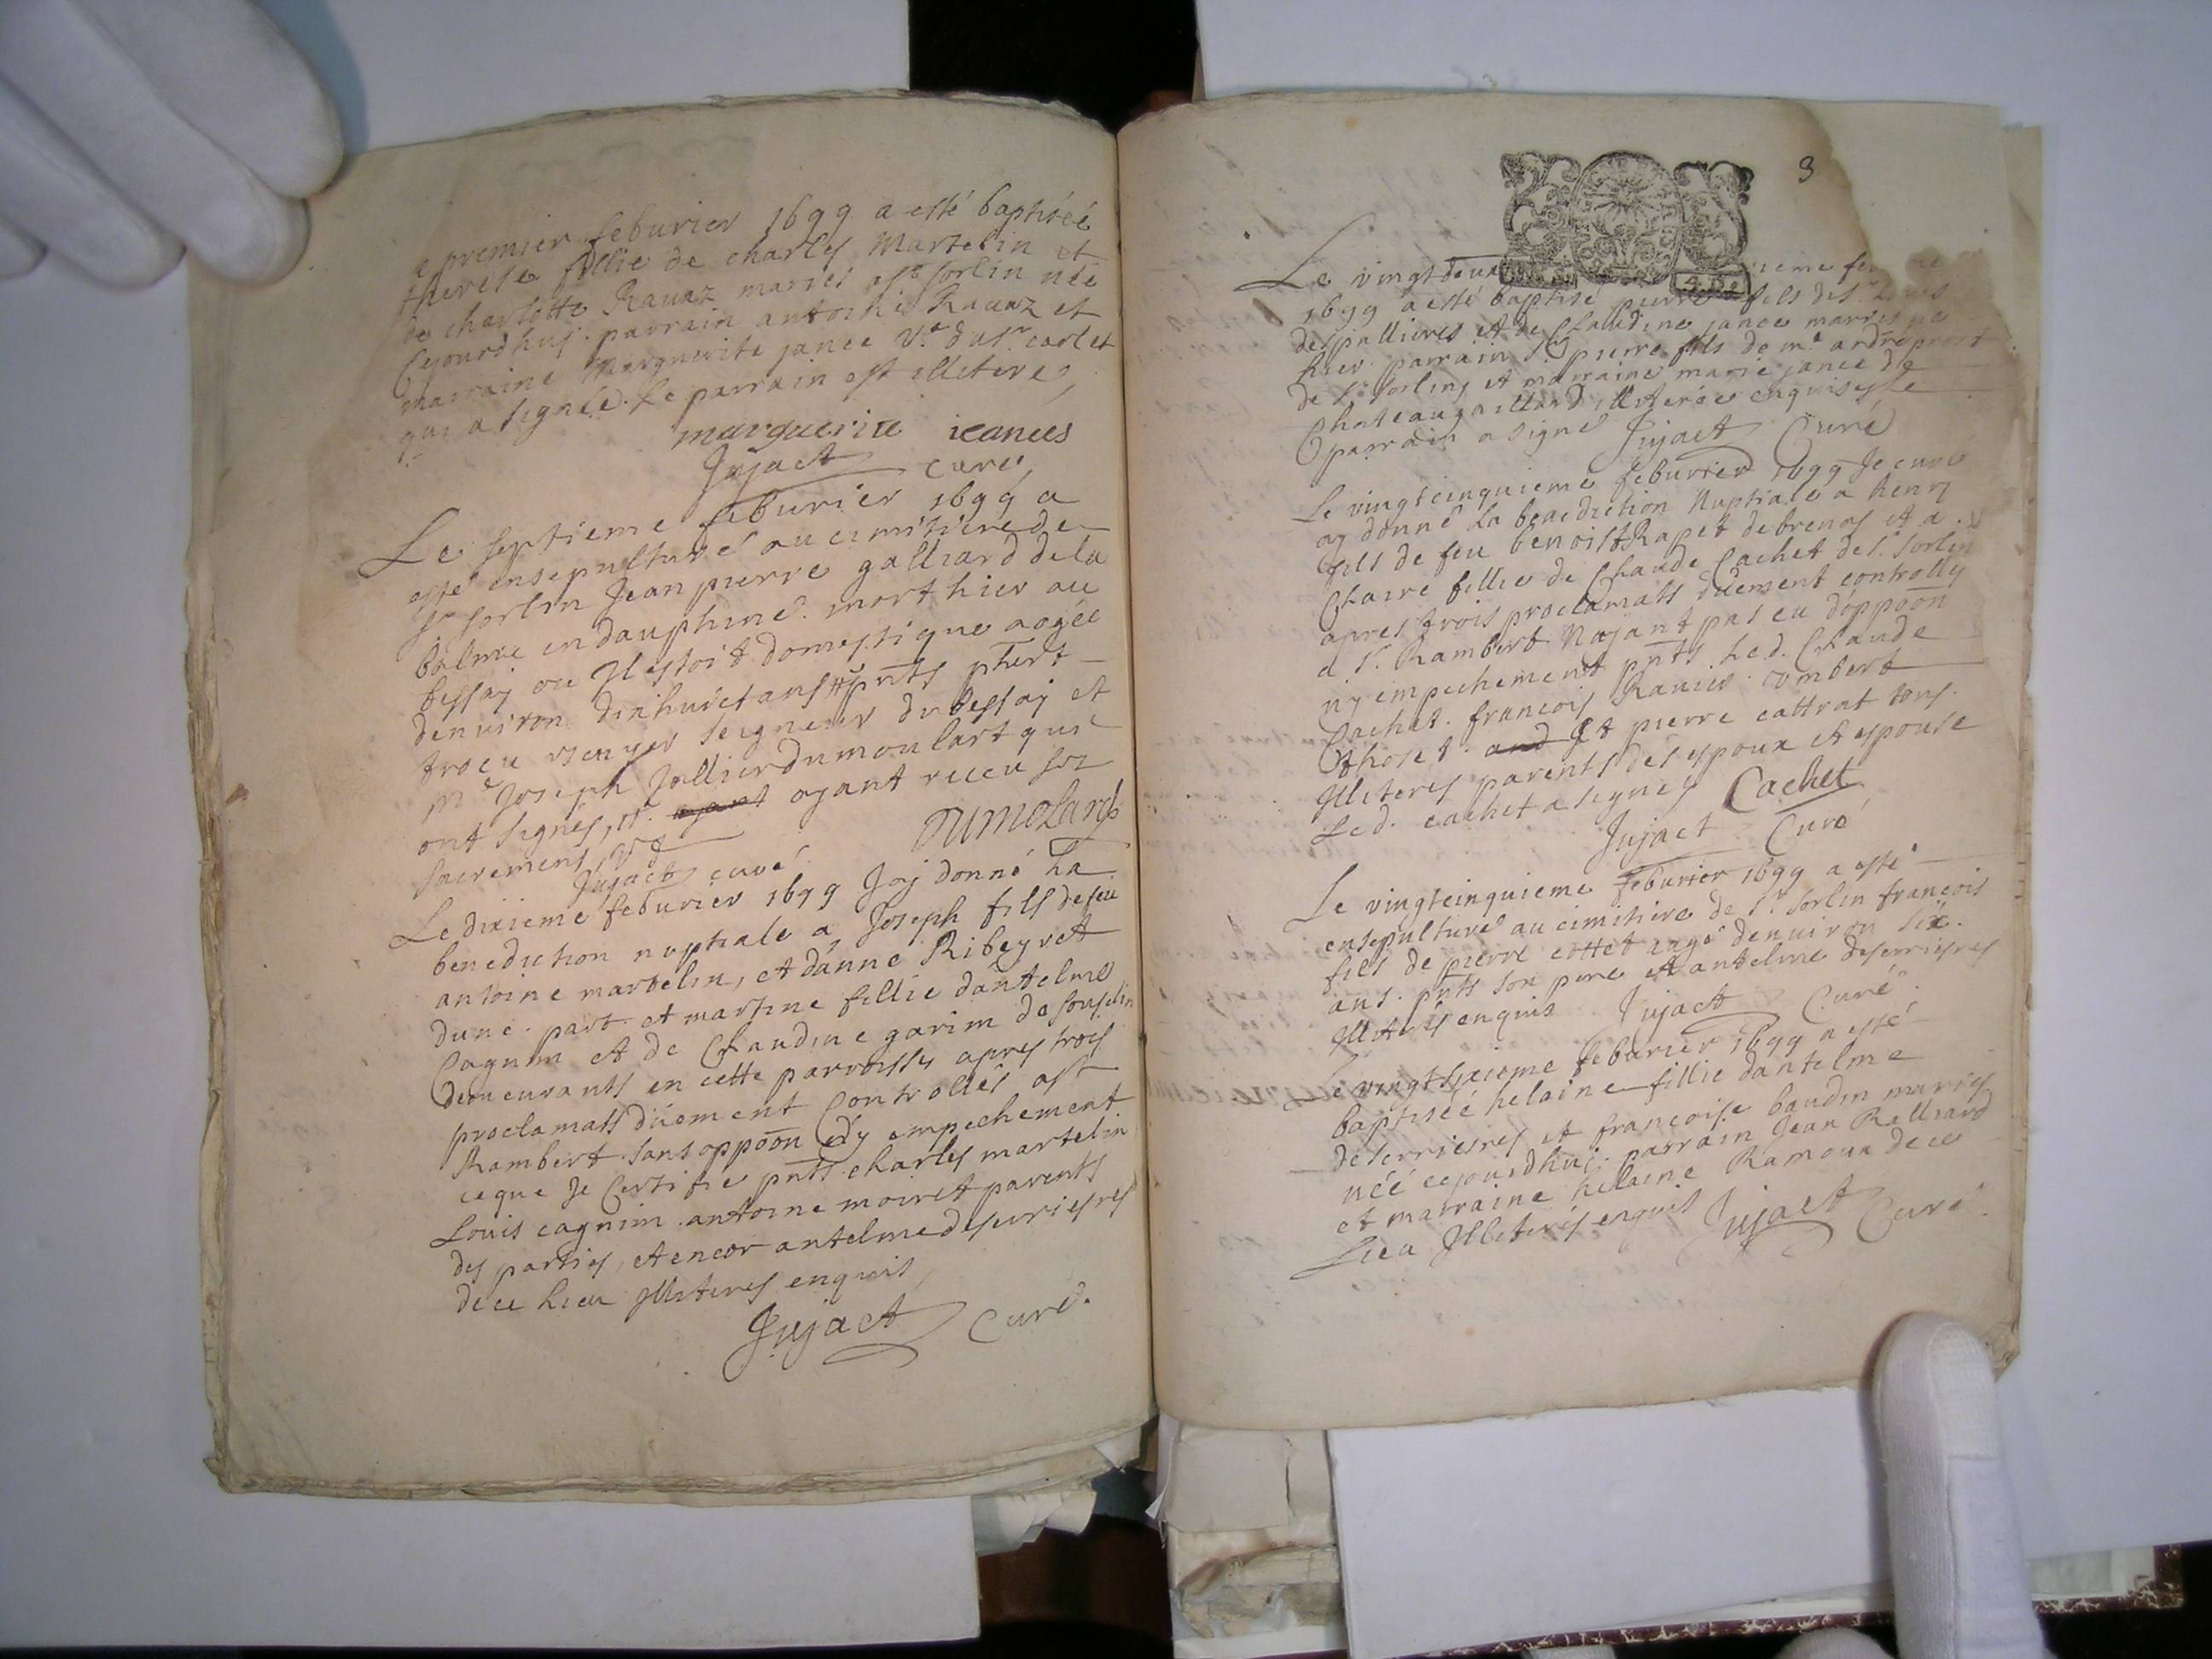 e premier feburier 1699 a esté baptiséé
therese fillie de charles Martelin et
de charlotte Ravaz mariés a St sorlin née
Cejourdhuj. parrain antoine Ravaz et
marraine Marguerite jance Ve du Sr carlet
qui a signée. Le parrain est illiteré,
marguerite ieances
Jujact curé
Le septieme feburier 1699 a
esté ensepulturé au cimitiere de
St sorlin Jean pierre galliard de la
balme en dauphiné. mort hier au
bessaj ou Il estoit domestique aagée
denuiron dixhuict ans pnts
trocu escuyer seigneur du bessaj et
Me Joseph Jollier dumoulart qui
ont signés, ayant ayant receu ses
sacremens,
DUMOLARD
Jujact curé
Le dixieme feburier 1699 Jaj donné La
benediction nuptiale a Joseph fils de feu
antoine martelin, et danne Ribeyret
dune part et martine fillie dantelme
Cagnin et de Claudine garim de souclin
demeurants en cette parroisse apres trois
proclamats düement Controllés a St
Rambert sans oppoon nÿ empechement
ceque Je Certifie pnts charles martelin
Louis cagnin antoine moiret parents
des parties, et encor antelme deserrieres
de ce Lieu Illiteres enquis,
Jujact Curé.
3
Le vingtdeux
1699 a esté baptisé pierre fils de Sr
despallieres et de Claudine jance mariés né
hier. parrain Sr pierre fils de me andré
de St sorlin, et marraine marie jance de
Chateaugaillard, illiterée enquise Le
parrain a signé Jujact Curé
Le vingtcinquieme feburier 1699 Je curé
aÿ donné La benediction Nuptiale a henrÿ
fils de feu benoist Rapet de brenas et a
Claire fillie de Claude Cachet de St sorlin
apres trois proclamats düement controlles
a St Rambert Nayant pas eu doppoon
nÿ empechement pnts Led. Claude
Cachet. francois Ravier. ombert
Choset. and Et pierre cattrat tous
Illiteres parents des espoux et espouse
Led. cachet a signés Cachet
Jujact Curé
Le vingtcinquieme feburier 1699 a esté
ensepulturé au cimitiere de St sorlin francois
fils de pierre cottet aagé denuiron six
ans. pnts son pere et antelme deserrieres
Illiterés enquis Jujact Curé
Le vingtsixieme feburier 1699 a esté
baptiséé helaine fillie dantelme
deserrieres et francoise baudin mariés
néé cejourdhui. parrain Jean Relliard
et marraine helaine Ramoux de ce
Lieu Illiterés enquis Jujact Curé.